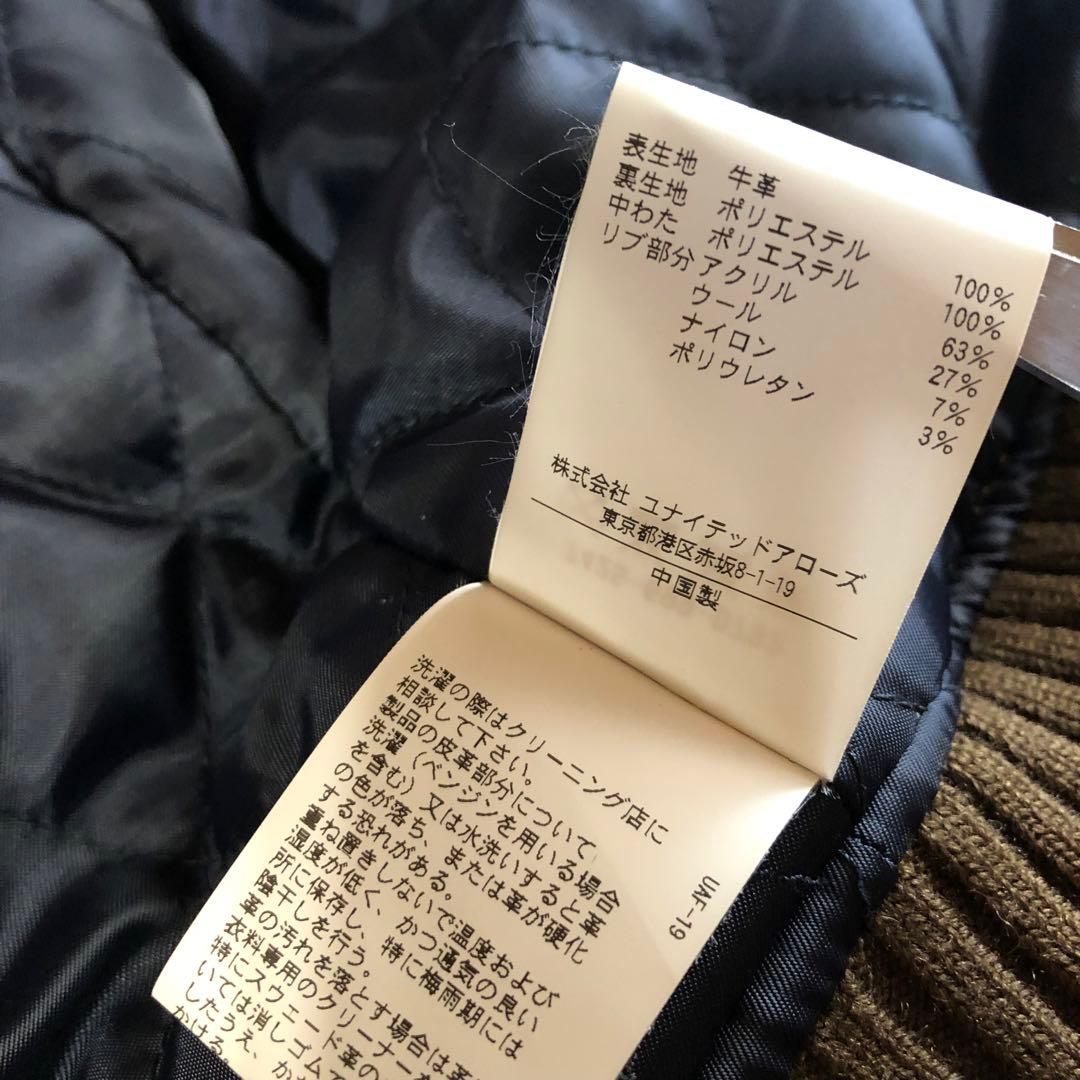 表生地 牛革
裏生地 ポリエステル 100%
中わた ポリエステル 100%
リブ部分 アクリル 63%
ウール 27%
ナイロン 7%
ポリウレタン 3%
株式会社 ユナイテッドアローズ
東京都港区赤坂8-1-19
中国製
洗濯の際はクリーニング店に
相談して下さい。
製品の皮革部分について
洗濯(ベンジンを用いる場合
を含む)又は水洗いすると革
の色が落ち、または革が硬化
する恐れがある。
重ね置きしないで温度および
湿度が低く、かつ通気の良い
所に保存し、特に梅雨期には
陰干しを行う。
革の汚れを落とす場合は革
衣料専用のクリーナーを
特にスウェード革の
いては消しゴム
したうえ、か
かける。
UNF-19